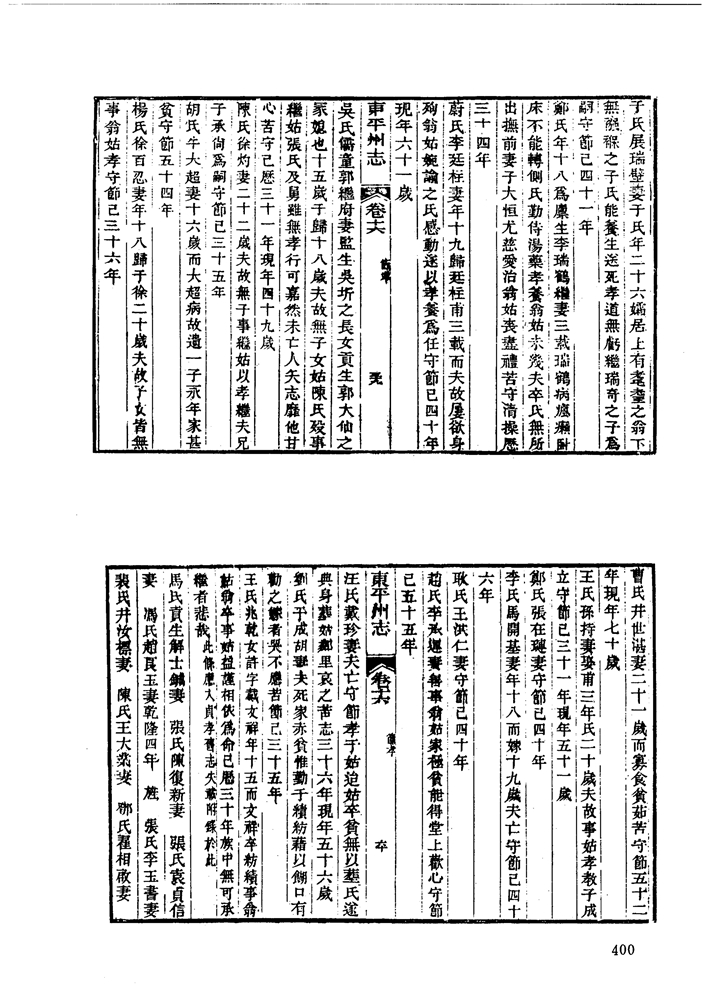 于氏展瑞璧妻于氏年二十六孀居上有耄耋之翁下
無襁褓之子氏能養生送死孝道無虧繼瑞奇之子爲
嗣守節已四十一年
鄭氏年十八爲廩生李瑞鶴繼妻三載瑞鶴病瘋癱臥
床不能轉側氏勤侍湯藥孝養翁姑未幾夫卒氏無所
出撫前妻子大恒尤慈愛治翁姑喪盡禮苦守清操歷
三十四年
蔚氏李廷枉妻年十九歸廷枉甫三載而夫故屢欲身
殉翁姑婉諭之氏感動遂以孝養爲任守節已四十年
現年六十一歲
東平州志
卷十六
吳氏儒童郭繼府妻監生吳圻之長女貢生郭大仙之
家媳也十五歲于歸十八歲夫故無子女姑陳氏殁事
繼姑張氏及舅雖無孝行可嘉然未亡人矢志靡他甘
心苦守已歷三十一年現年四十九歲
陳氏徐灼妻二十二歲夫故無子事繼姑以孝繼夫兄
子承尙爲嗣守節已三十五年
胡氏牛大超妻十六歲而大超病故遺一子永年家甚
貧守節五十四年
楊氏徐百忍妻年十八歸于徐二十歲夫故子女皆無
事翁姑孝守節已三十六年
曹氏井世諶妻二十一歲而寡食貧茹苦守節五十二
年現年七十歲
王氏孫持妻娶甫三年氏二十歲夫故事姑孝教子成
立守節已三十一年現年五十一歲
鄭氏張在璉妻守節已四十年
李氏馬開基妻年十八而嫁十九歲夫亡守節已四十
六年
耿氏王洪仁妻守節已四十年
趙氏李永遲妻善事翁姑家極貧能得堂上歡心守節
已五十五年
東平州志
卷十六
汪氏戴珍妻夫亡守節孝于姑迨姑卒貧無以塟氏遂
典身塟姑鄰里哀之苦志三十六年現年五十六歲
劉氏于成胡妻夫死家赤貧惟勤于績紡藉以餬口有
勸之嫁者哭不應苦節已三十五年
王氏兆乾女許字戴文祥年十五而文祥卒紡績事翁
姑翁卒事姑益謹相依爲命已歷三十年族中無可承
繼者悲哉此條應入貞孝舊志失載附錄於此
馬氏貢生解士鍼妻 張氏陳復新妻 張氏袁貞信
妻 馮氏趙良玉妻乾隆四年 旌 張氏李玉書妻
裴氏井汝標妻 陳氏王大業妻 鄭氏翟相敢妻
400